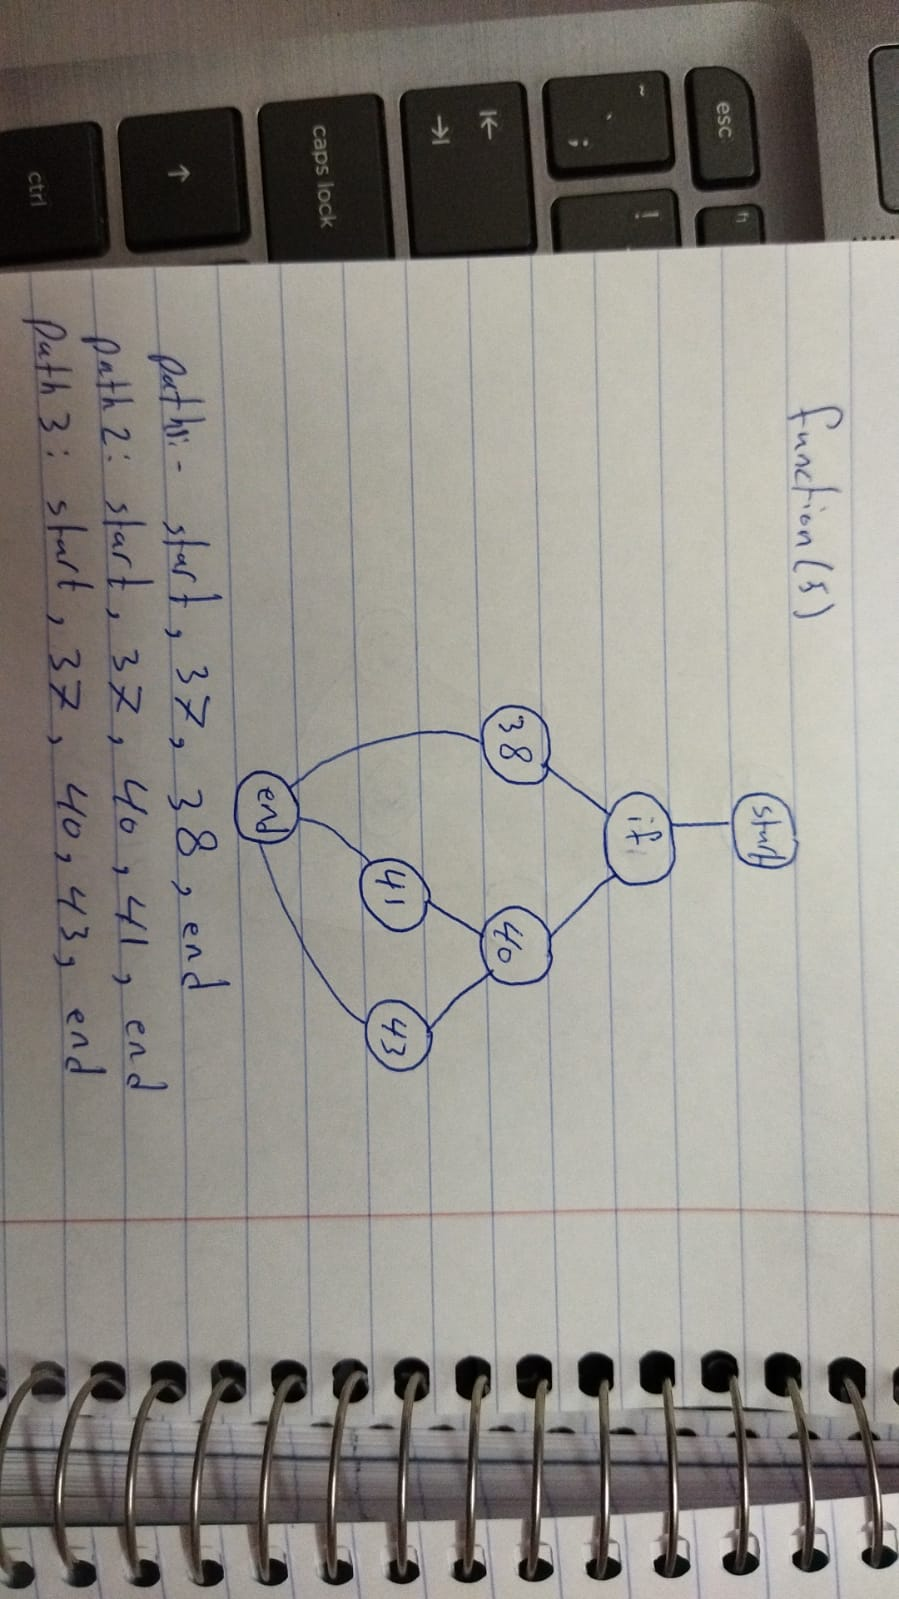 esc
~
`
;
!
caps lock
ctrl
function(5)
start
if
38
40
41
43
end
path1:- start, 37, 38, end
path 2: start, 37, 40, 41, end
path 3: start, 37, 40, 43, end